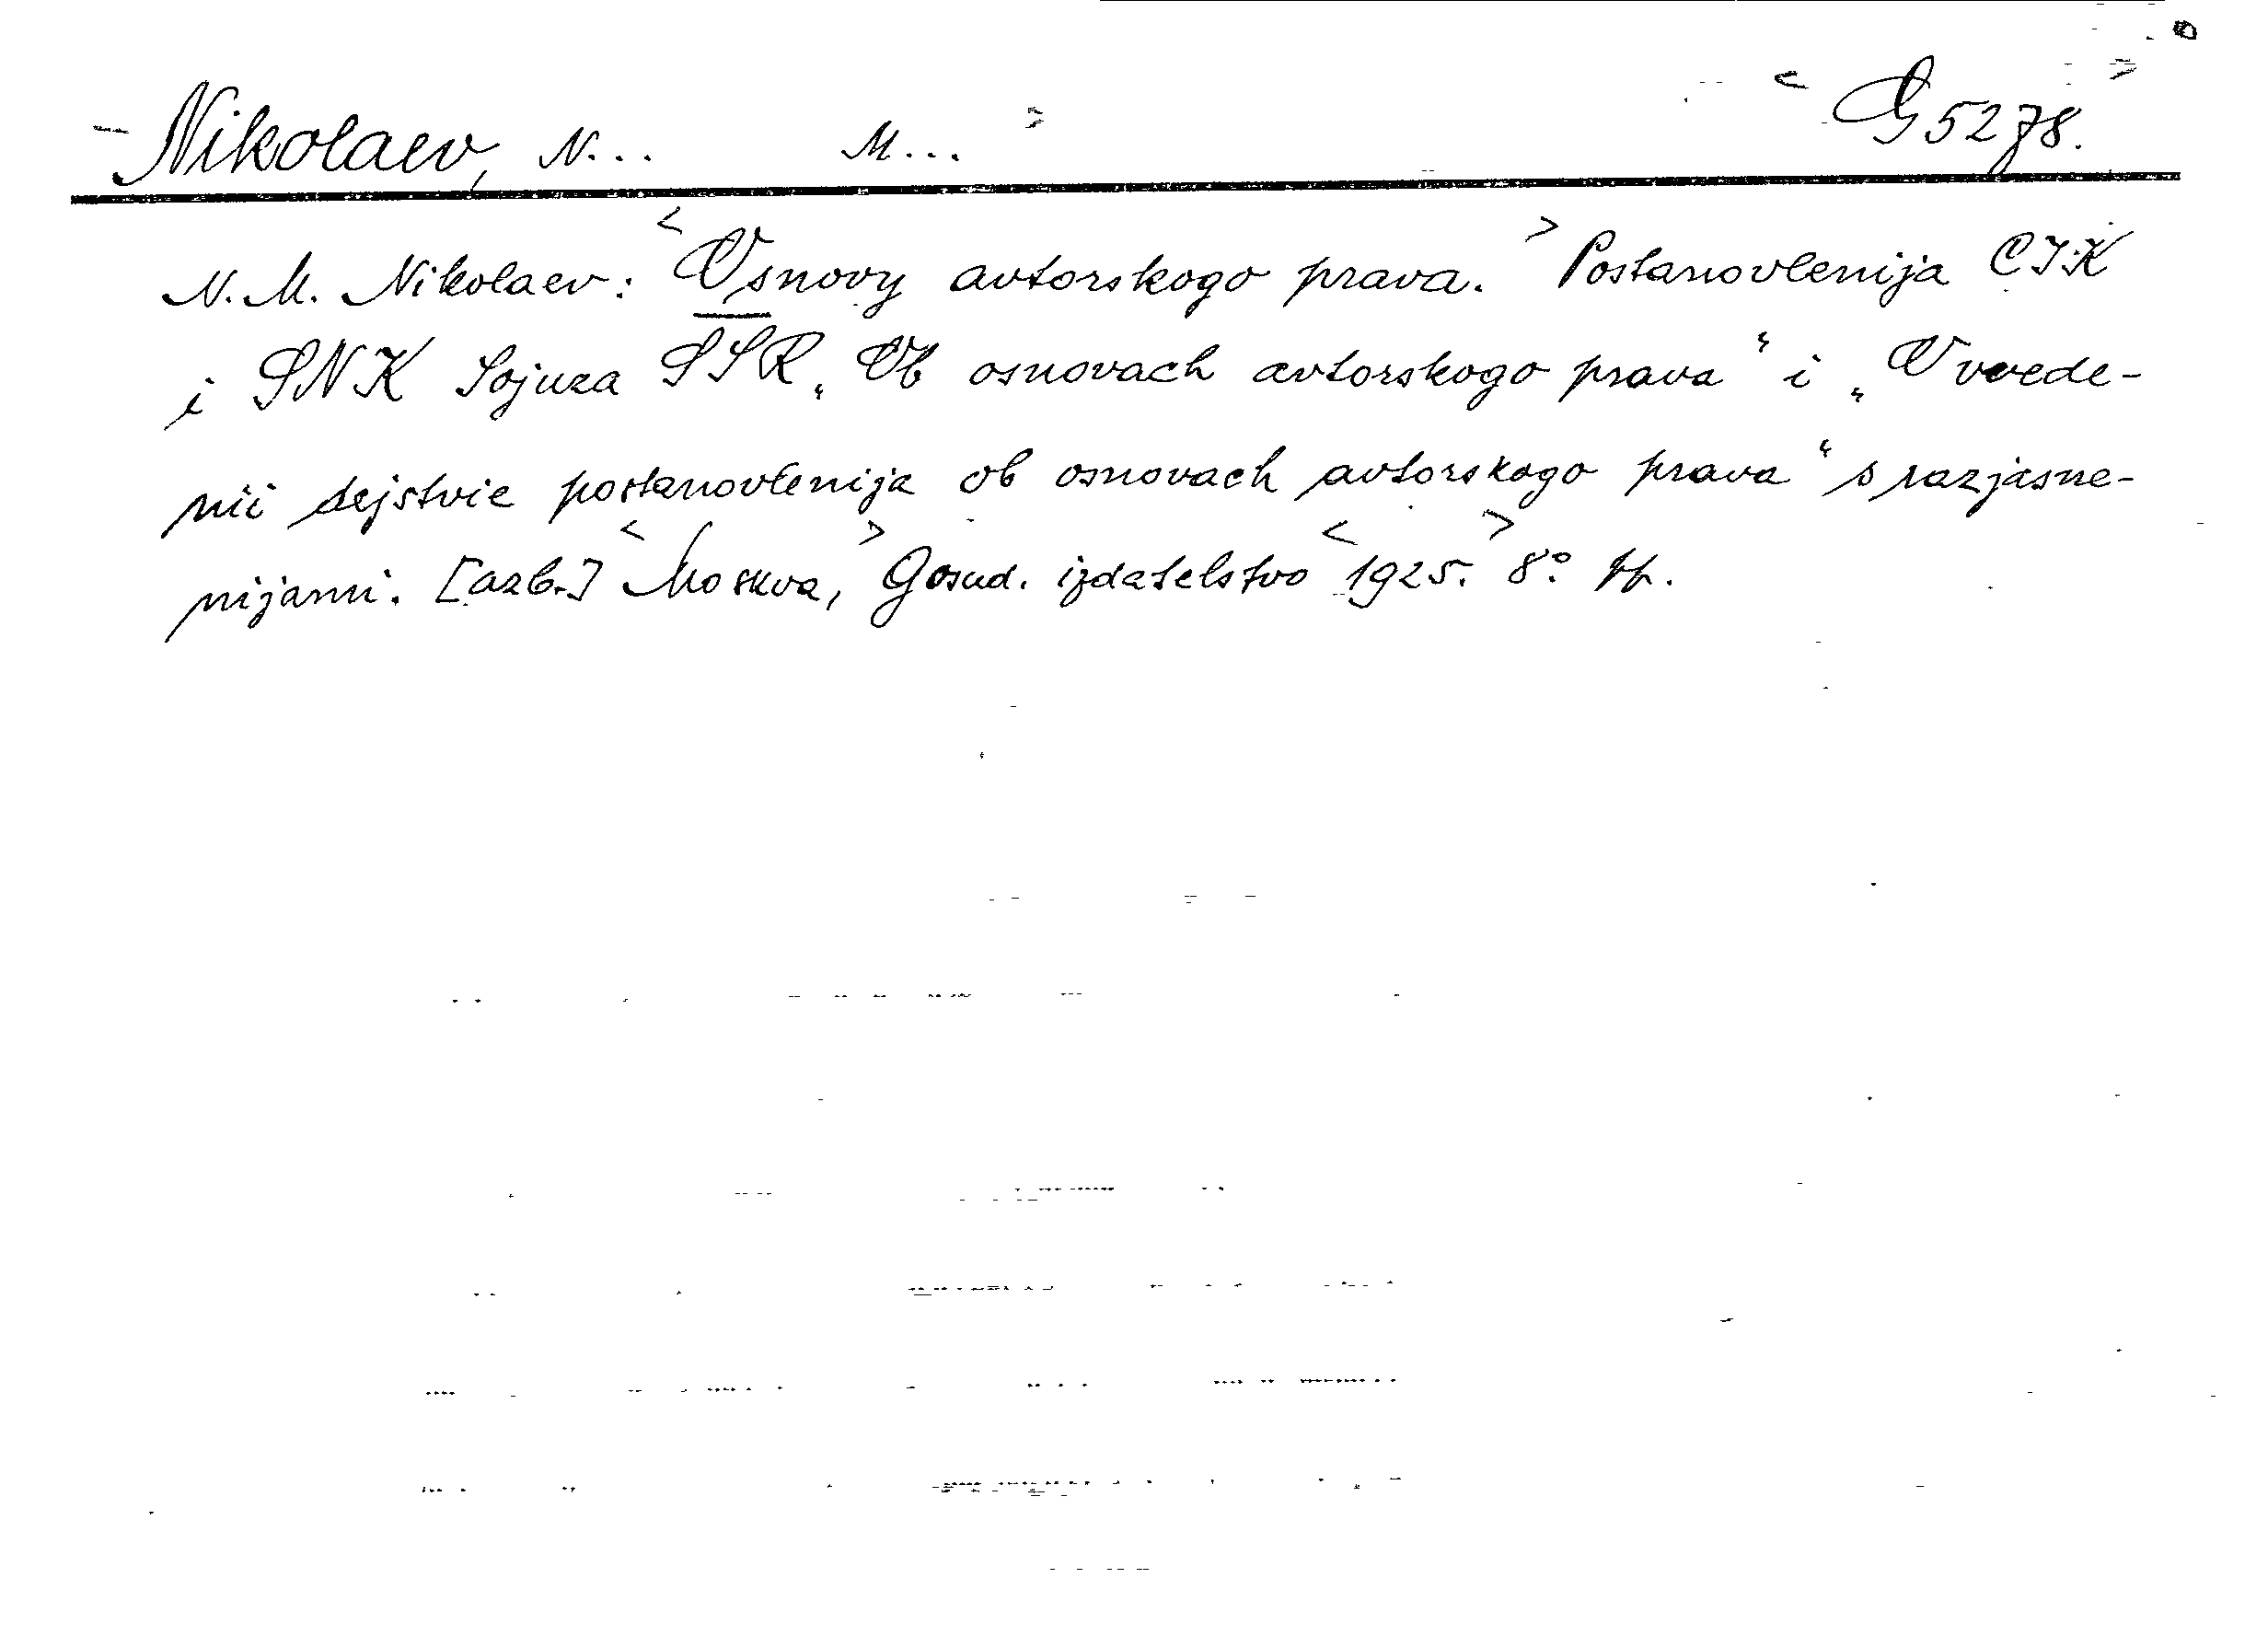 Nikolaev, N... M... > < G 5278. >
N. M. Nikolaev: < Osnovy avtorskogo prava. > Postanovlenija CIK
i SNK Sojuza SSR „Ob osnovach avtorskogo prava“ i „O vvede-
nii dejstvie postanovlenija ob osnovach avtorskogo prava“ s razjasne-
nijami. [azb.] < Moskva, > Gosud. izdatelstvo < 1925. > 8°.